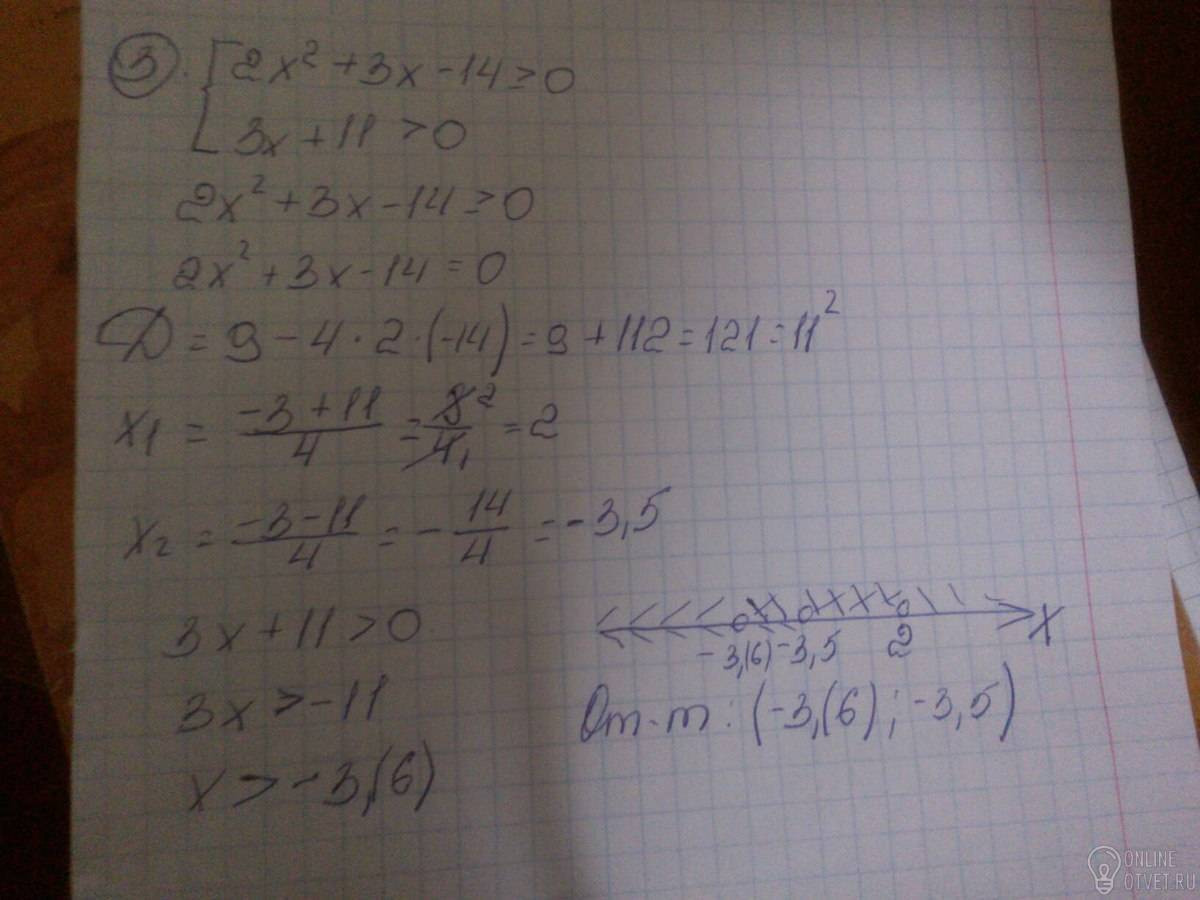 3. 2x² + 3x - 14 ≥ 0
3x + 11 > 0
2x² + 3x - 14 ≥ 0
2x² + 3x - 14 = 0
D = 9 - 4 · 2 · (-14) = 9 + 112 = 121 = 11²
x1 = (-3 + 11)/4 = 8/4 = 2
x2 = (-3 - 11)/4 = -14/4 = -3,5
3x + 11 > 0
3x > -11
x > -3,(6)
-3,(6) -3,5 2 x
От-т: (-3,(6); -3,5)
ONLINE
OTVET.RU